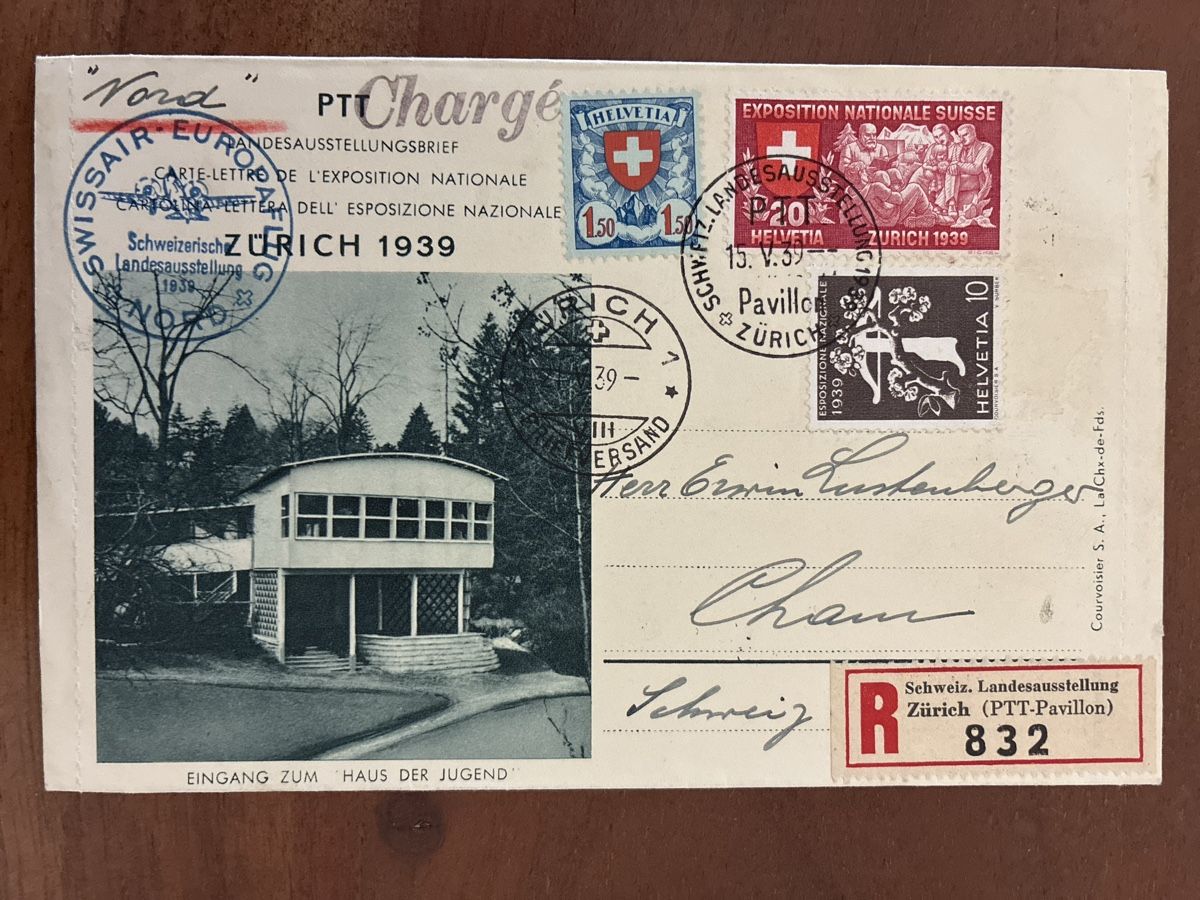 "Nord"
PTT
Chargé
LANDESAUSSTELLUNGSBRIEF
CARTE-LETTRE DE L'EXPOSITION NATIONALE
CARTOLINA-LETTERA DELL' ESPOSIZIONE NAZIONALE
ZÜRICH 1939
SWISSAIR-EUROPAFLUG
Schweizerische
Landesausstellung
1939
NORD
HELVETIA
1.50 1.50
EXPOSITION NATIONALE SUISSE
HELVETIA ZURICH 1939
SCHWEIZ. LANDESAUSSTELLUNG 1939
PTT
15. V. 39
Pavillon
ZÜRICH
ESPOSIZIONE NAZIONALE
1939
HELVETIA 10
COURVOISIER S A V SURBER
ZÜRICH 1
39–
VIII
BRIEFVERSAND
Herr Erwin Lustenberger
Cham
Schweiz
Courvoisier S. A., La Chx-de-Fds.
R
Schweiz. Landesausstellung
Zürich (PTT-Pavillon)
832
EINGANG ZUM "HAUS DER JUGEND"